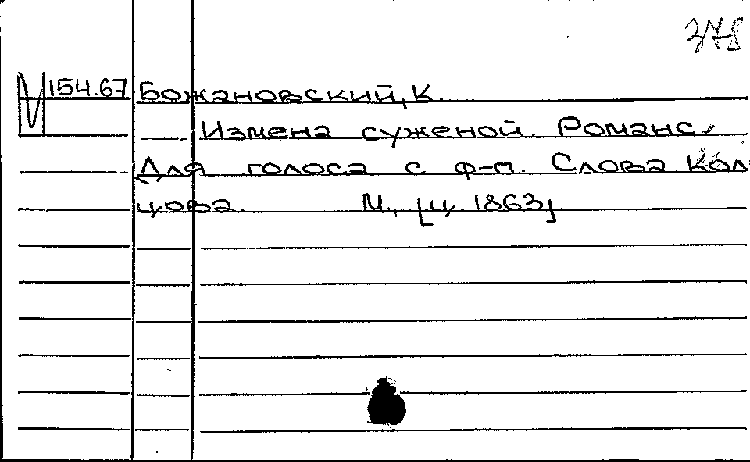 378
154.67 Божановский, К.
Измена суженой. Романс.
Для голоса с ф-п. Слова Коль
цова. М., [ц. 1863]